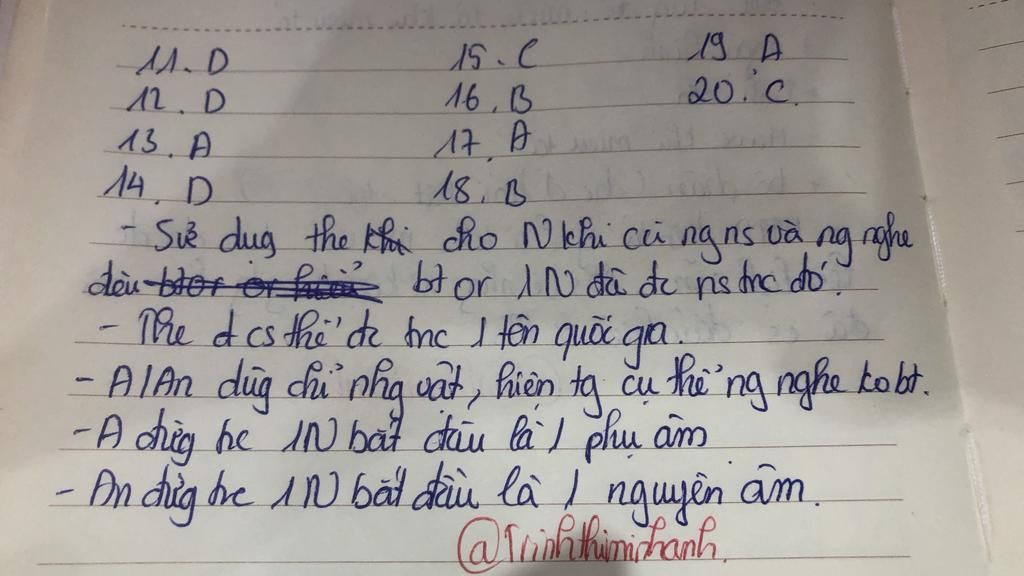 11. D 15. C 19 A
12. D 16. B 20. C.
13. A 17. A
14. D 18. B
- Sử dụg the cho N khi cả ng ns và ng nghe
đều bt or 1N đã đc ns trc đó.
- The đ cs thể đc trc 1 tên quốc gia.
- A/An dùg chỉ nhg vật, hiện tg cụ thể ng nghe ko bt.
- A đứg trc 1N bắt đầu là 1 phụ âm
- An đứg trc 1N bắt đầu là 1 nguyên âm.
@Trinhthiminhanh.